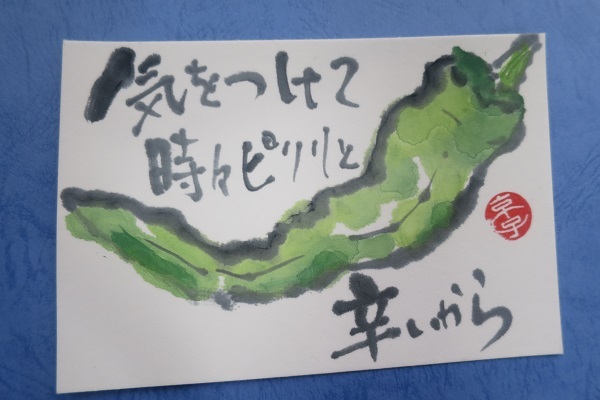 気をつけて
時々ピリリと
辛いから
京子